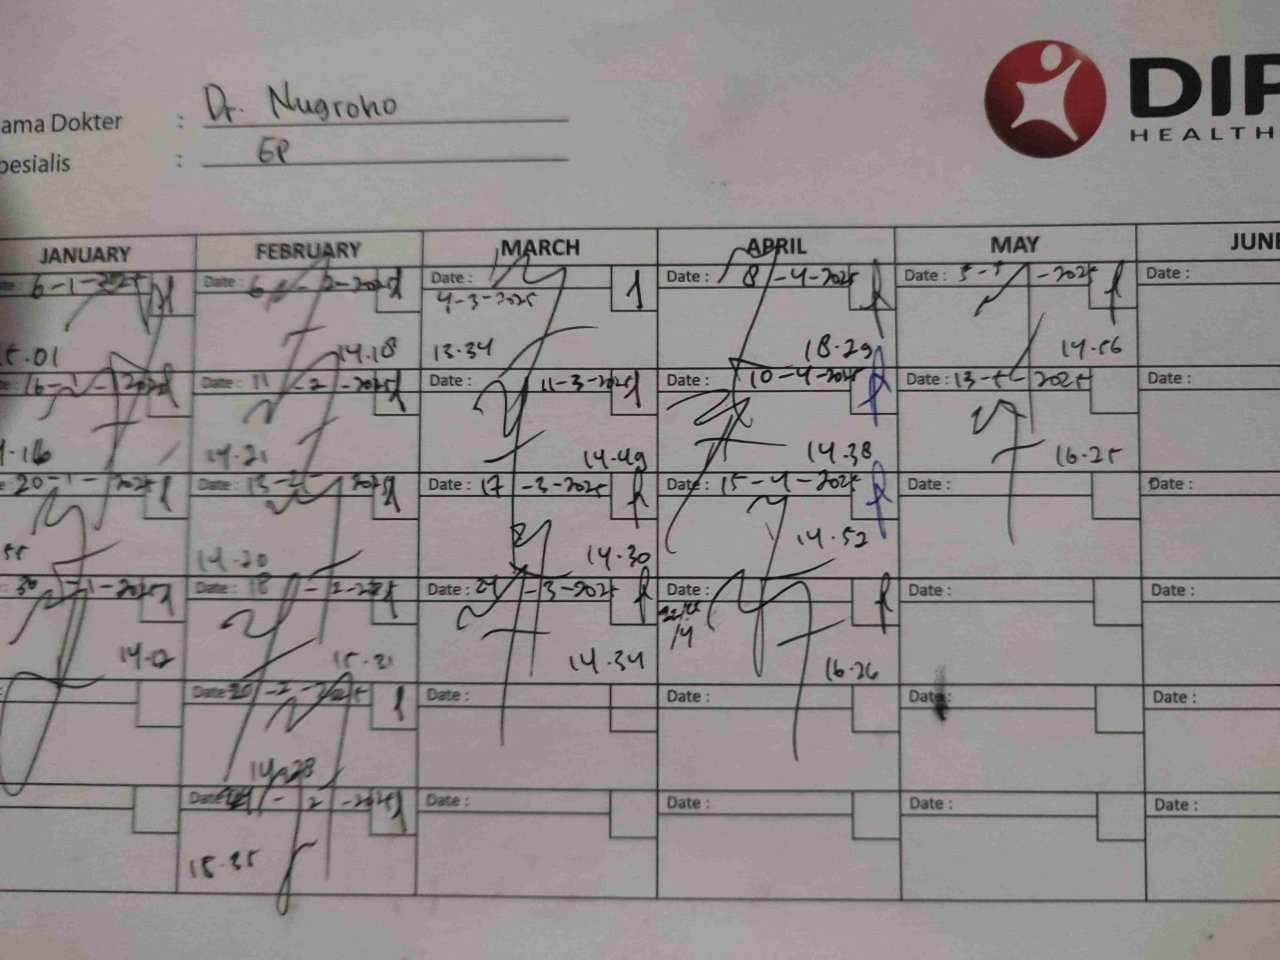 ama Dokter : Dr. Nugroho
pesialis : GP
DIP
HEALTH
JANUARY FEBRUARY MARCH APRIL MAY JUNE
6-1-2025 Date : 6-2-2025 Date : 4-3-2025 Date : 8-4-2025 Date : 5-5-2025 Date :
5.01 14.18 13.34 18.29 14.56
16-1-2025 Date : 11-2-2025 Date : 11-3-2025 Date : 10-4-2025 Date : 13-5-2025 Date :
14.21 14.49 14.38 16.25
20-1-2025 Date : 13-2-2025 Date : 17-3-2025 Date : 15-4-2025 Date : Date :
55 14.20 14.30 14.52
30-1-2025 Date : 18-2-2025 Date : -3-2025 Date : Date : Date :
14.12 15.21 14.34 16.26
Date : 20-2-2025 Date : Date : Date : Date :
14.28
Date : -2-2025 Date : Date : Date : Date :
15.35